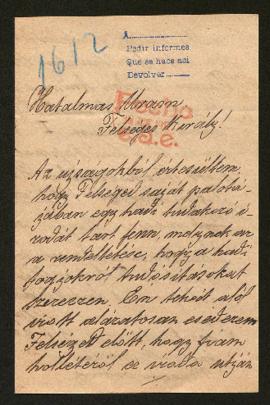 1612
A
Pedir informes
Que se hace aci
Devolver
Hatalmas Uram
Felséges Király!
Az ujságokból értesültem,
hogy Felséged saját palotá-
jában egy hadi tudakozó i-
rodát tart fenn, melynek az
a rendeltetése, hogy a hadi
foglyokról tudósitásokat
szerezzen. Én tehát alól
irott alázatosan esedezem
Felséged előtt, hogy fiam
hollétéről ez iroda utján